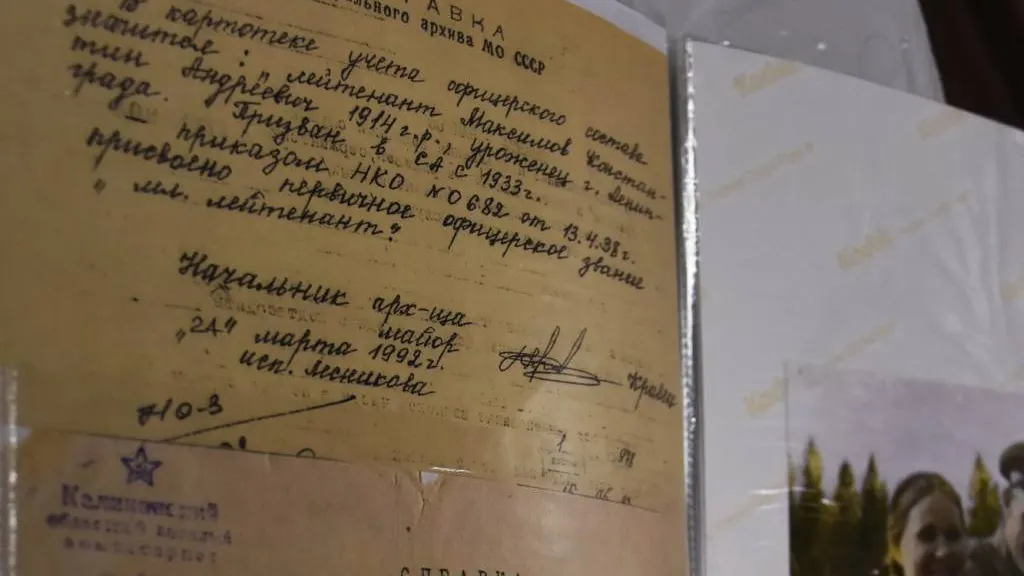 СПРАВКА
архива МО СССР
В картотеке учета офицерского состава
значится: лейтенант Максимов Констан-
тин Андреевич 1914 г.р., уроженец г. Ленин-
града. Призван в СА с 1933г.
приказом НКО №0682 от 13.4.38г.
присвоено первичное офицерское звание
"мл. лейтенант"
Начальник арх-ща
майор
"24" марта 1992г.
исп. Лесникова
Ю-3
Калининский
областной военный
комиссариат
СПРАВКА
Kodak